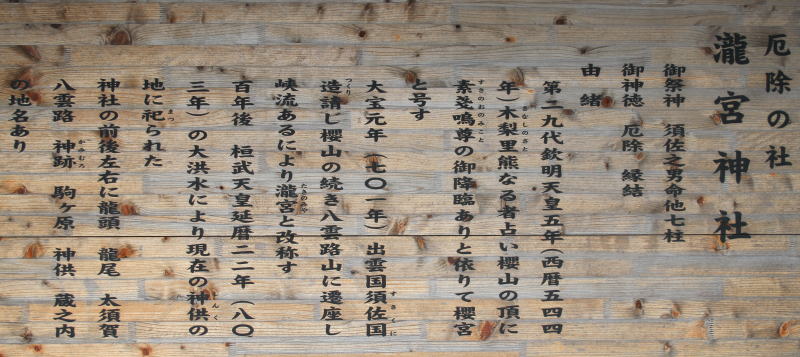 厄除の社
瀧宮神社
御祭神 須佐之男命他七柱
御神徳 厄除 縁結
由緒
第二九代欽明天皇五年(西暦五四四
年)木梨里熊なる者占い櫻山の頂に
素戔嗚尊の御降臨ありと依りて櫻宮
と号す
大宝元年(七〇一年)出雲国須佐国
造請じ櫻山の続き八雲路山に遷座し
峡流あるにより瀧宮と改称す
百年後 桓武天皇延暦二二年(八〇
三年)の大洪水により現在の神供の
地に祀られた
神社の前後左右に龍頭 龍尾 太須賀
八雲路 神跡 駒ヶ原 神供 蔵之内
の地名あり